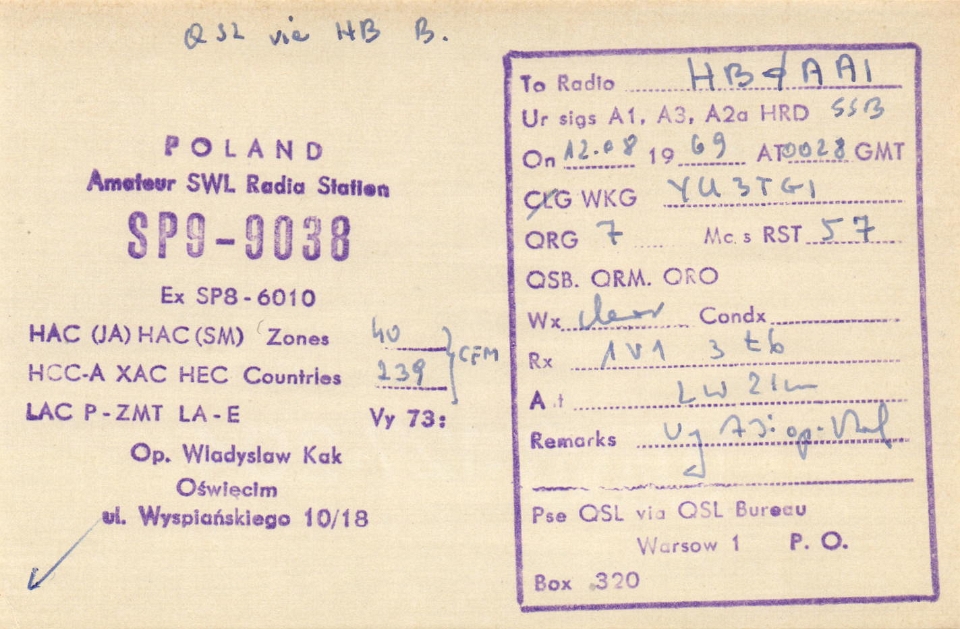 QSL via HB B.
POLAND
Amateur SWL Radio Station
SP9-9038
Ex SP8-6010
HAC (JA) HAC (SM) Zones 40
HCC-A XAC HEC Countries 239
CFM
LAC P-ZMT LA-E Vy 73:
Op. Wladyslaw Kak
Oświęcim
ul. Wyspiańskiego 10/18
To Radio HB4AA1
Ur sigs A1, A3, A2a HRD SSB
On 12.08 1969 AT 0028 GMT
CLG WKG YU3TG1
QRG 7 Mc.s RST 57
QSB. QRM. QRO
Wx clear Condx
Rx 1V1 3 tb
A.t LW 21m
Remarks Vy 73: op.
Pse QSL via QSL Bureau
Warsow 1 P. O.
Box 320